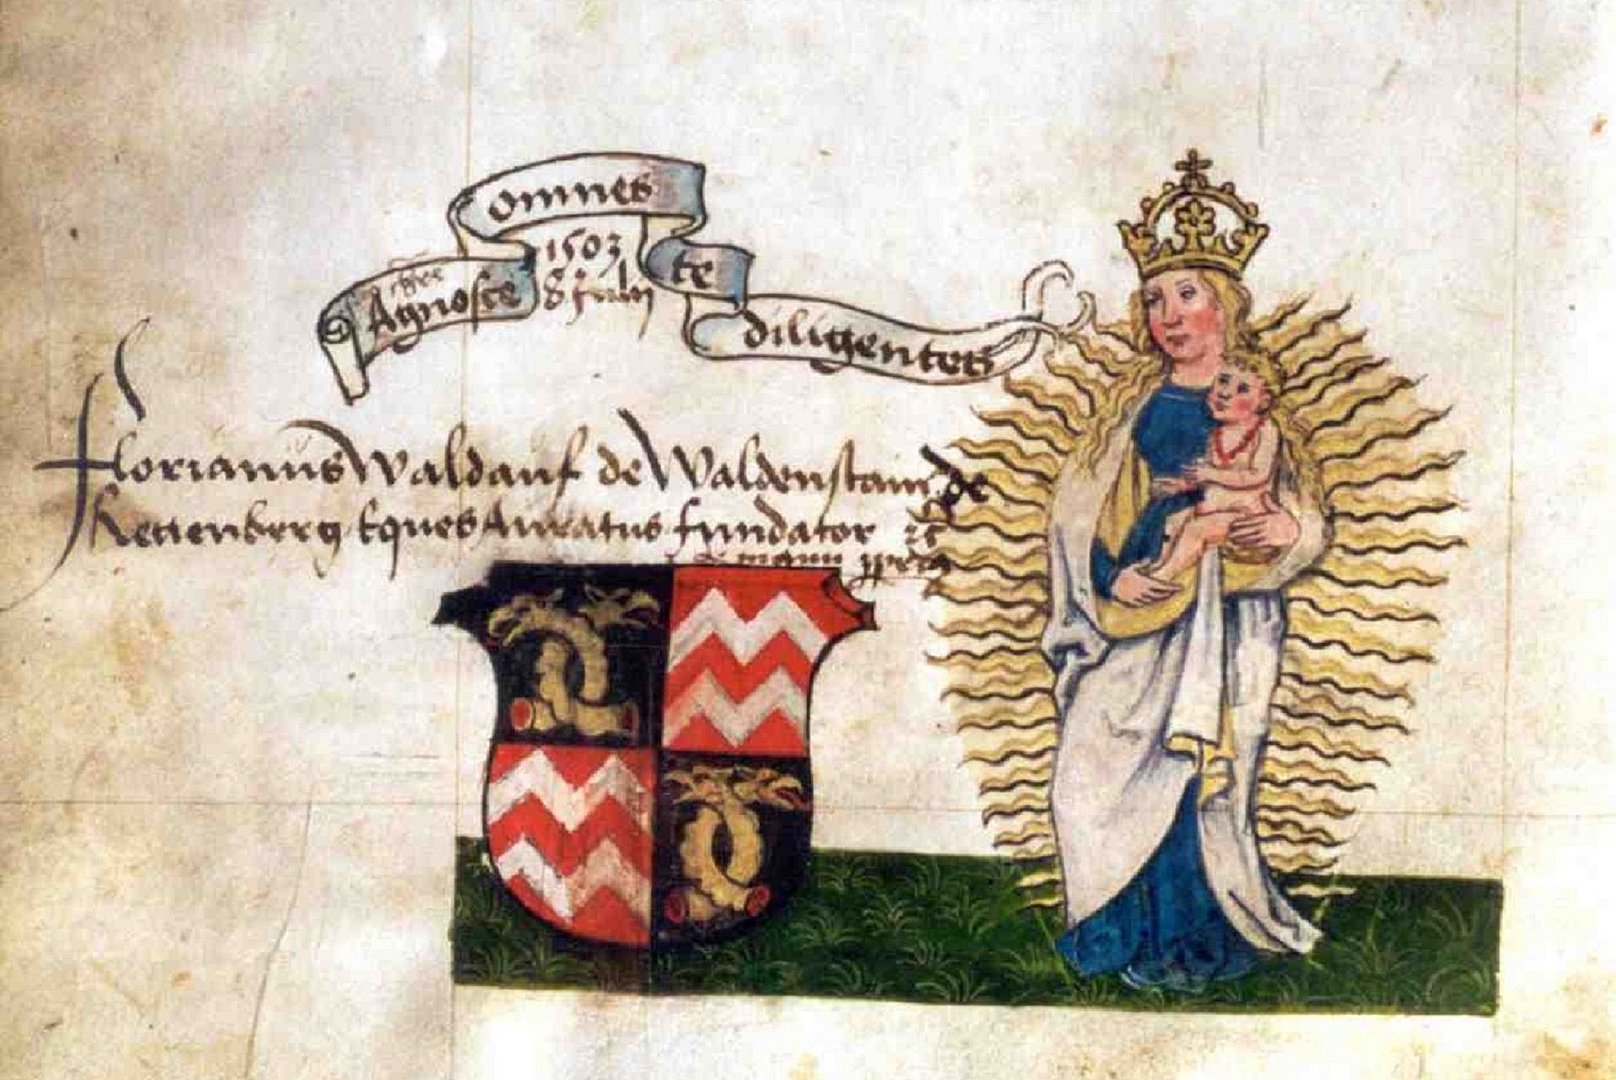 Agnosce omnes te diligentes
1503
8 Julij
Florianus Waldauf de Waldenstain de
Rettenberg Eques Auratus fundator zc
manu ppria